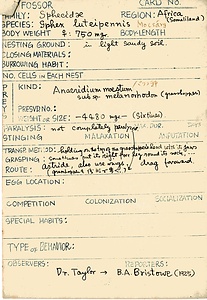 FOSSOR CARD NO.
FAMILY: Sphecidae REGION: Africa
(Somaliland)
SPECIES: Sphex luteipennis Mocsáry
BODY WEIGHT ♀: 750 mgr. BODY-LENGTH
NESTING GROUND: in light sandy soil
CLOSING MATERIALS:
BURROWING HABIT:
NO. CELLS IN EACH NEST
PREY
KIND: Anacridium moestum
subsp. melanorhodon (grasshopper)
PREY'S IND. NO.:
WEIGHT OF: -4230 mgr- (six times)
PARALYSIS: not completely DUR.
STINGING MALAXATION AMPUTATION
TRANSP. METHOD: Holding on to the grasshopper's head with its jaws
GRASPING: sometimes put its right fore leg round its neck,
ROUTE: astride, also use wings, drag forward,
EGG LOCATION:
COMPETITION COLONIZATION SOCIALIZATION
SPECIAL HABITS:
TYPE of BEHAVIOR:
OBSERVERS: REPORTERS:
Dr. Taylor → B.A. Bristowe (1925)